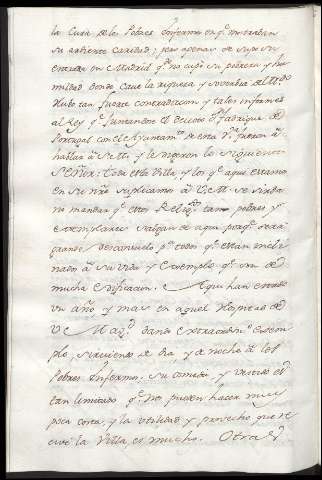 la Cura de los Pobres enfermos en qe. mostraban
su ardiente caridad; pero apenas se supo su
entrada en Madrid qe. no cupo su pobreza y hu
mildad donde cave la riqueza y sovervia del Mdo.
Hubo tan fuerte contradiccion y tales informes
al Rey qe. juntandose el Dn. Fadrique de
Portugal con el Ayuntamto. de esta Va. fueron á
hablar á S. M. y le digeron lo siguiente
Señor: Toda esta Villa, y los qe. aqui estamos
en su nre. suplicamos á V. M. se sirva
no mandar qe. estos Religs. tan pobres y
exemplares salgan de aqui porqe. será
grande desconsuelo pa. todos qe. estan incli
nados á su vida y exemplo qe. son de
mucha edificacion. Aqui han estado
un año y mas en aquel Hospital de
V. Magd. dando extraordino. exem
plo, sirviendo de dia y de noche á los
Pobres Enfermos. su comida y vestido es
tan limitado qe. no pueden hacer muy
poca costa, y la utilidad y provecho que re
cive la Villa, es mucho. Otra